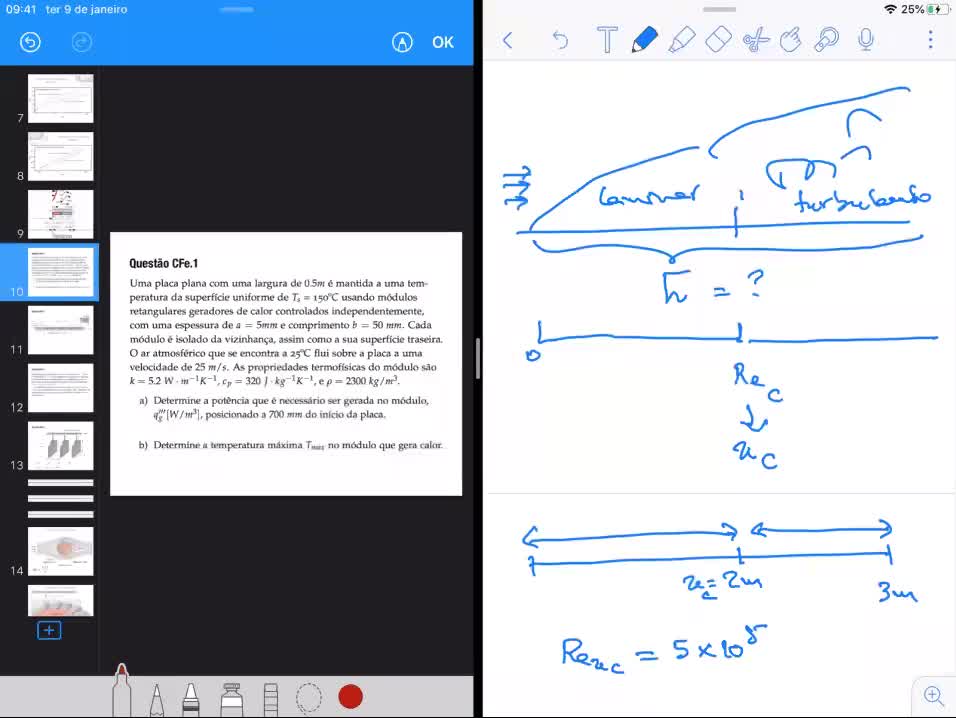 09:41 ter 9 de janeiro
25%
OK
7
8
9
10
11
12
13
14
Questão CFe.1
Uma placa plana com uma largura de 0.5m é mantida a uma tem-
peratura da superfície uniforme de Tₛ = 150ºC usando módulos
retangulares geradores de calor controlados independentemente,
com uma espessura de a = 5mm e comprimento b = 50 mm. Cada
módulo é isolado da vizinhança, assim como a sua superfície traseira.
O ar atmosférico que se encontra a 25ºC flui sobre a placa a uma
velocidade de 25 m/s. As propriedades termofísicas do módulo são
k = 5.2 W · m⁻¹K⁻¹, cₚ = 320 J · kg⁻¹K⁻¹, e ρ = 2300 kg/m³.
a) Determine a potência que é necessário ser gerada no módulo,
q̇‴g [W/m³], posicionado a 700 mm do início da placa.
b) Determine a temperatura máxima Tmax no módulo que gera calor.
T
laminar
turbulento
h̄ = ?
0
Re_c
x_c
x_c = 2m
3m
Re_xc = 5 × 10⁵